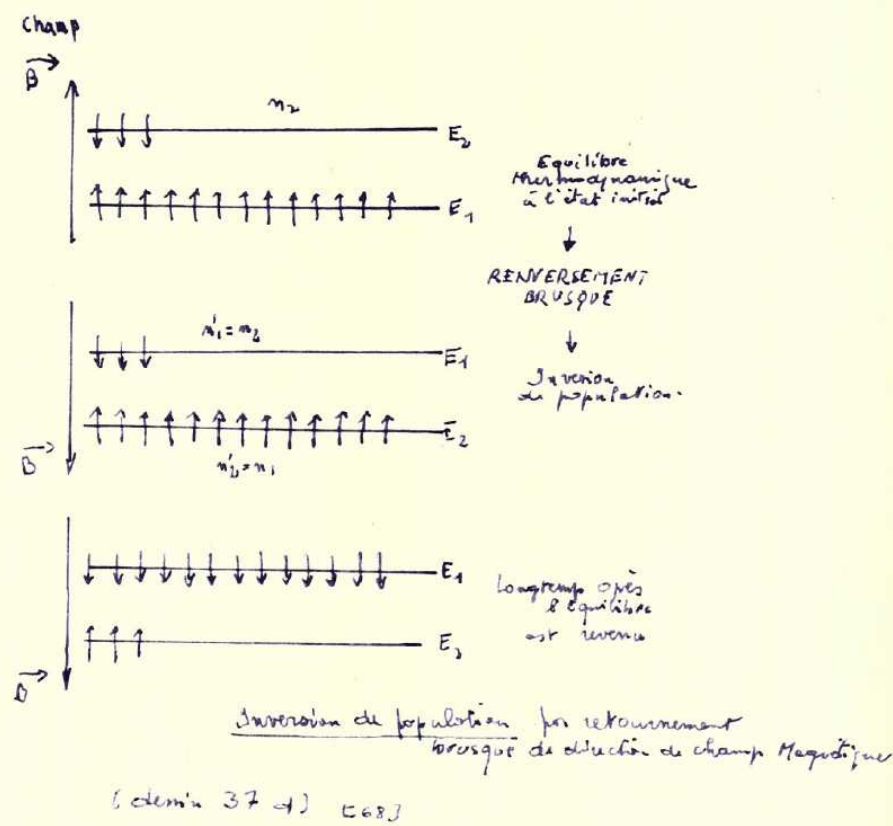 Champ
B
n₂
E₂
Equilibre
thermodynamique
à l'état initial
E₁
RENVERSEMENT
BRUSQUE
n'₁ = n₂
E₁
Inversion
de population.
E₂
B
n'₂ = n₁
E₁
Longtemp après
l'équilibre
est revenu
E₂
B
Inversion de population par retournement
brusque de direction de champ Magnétique
(dessin 37 d) [68]